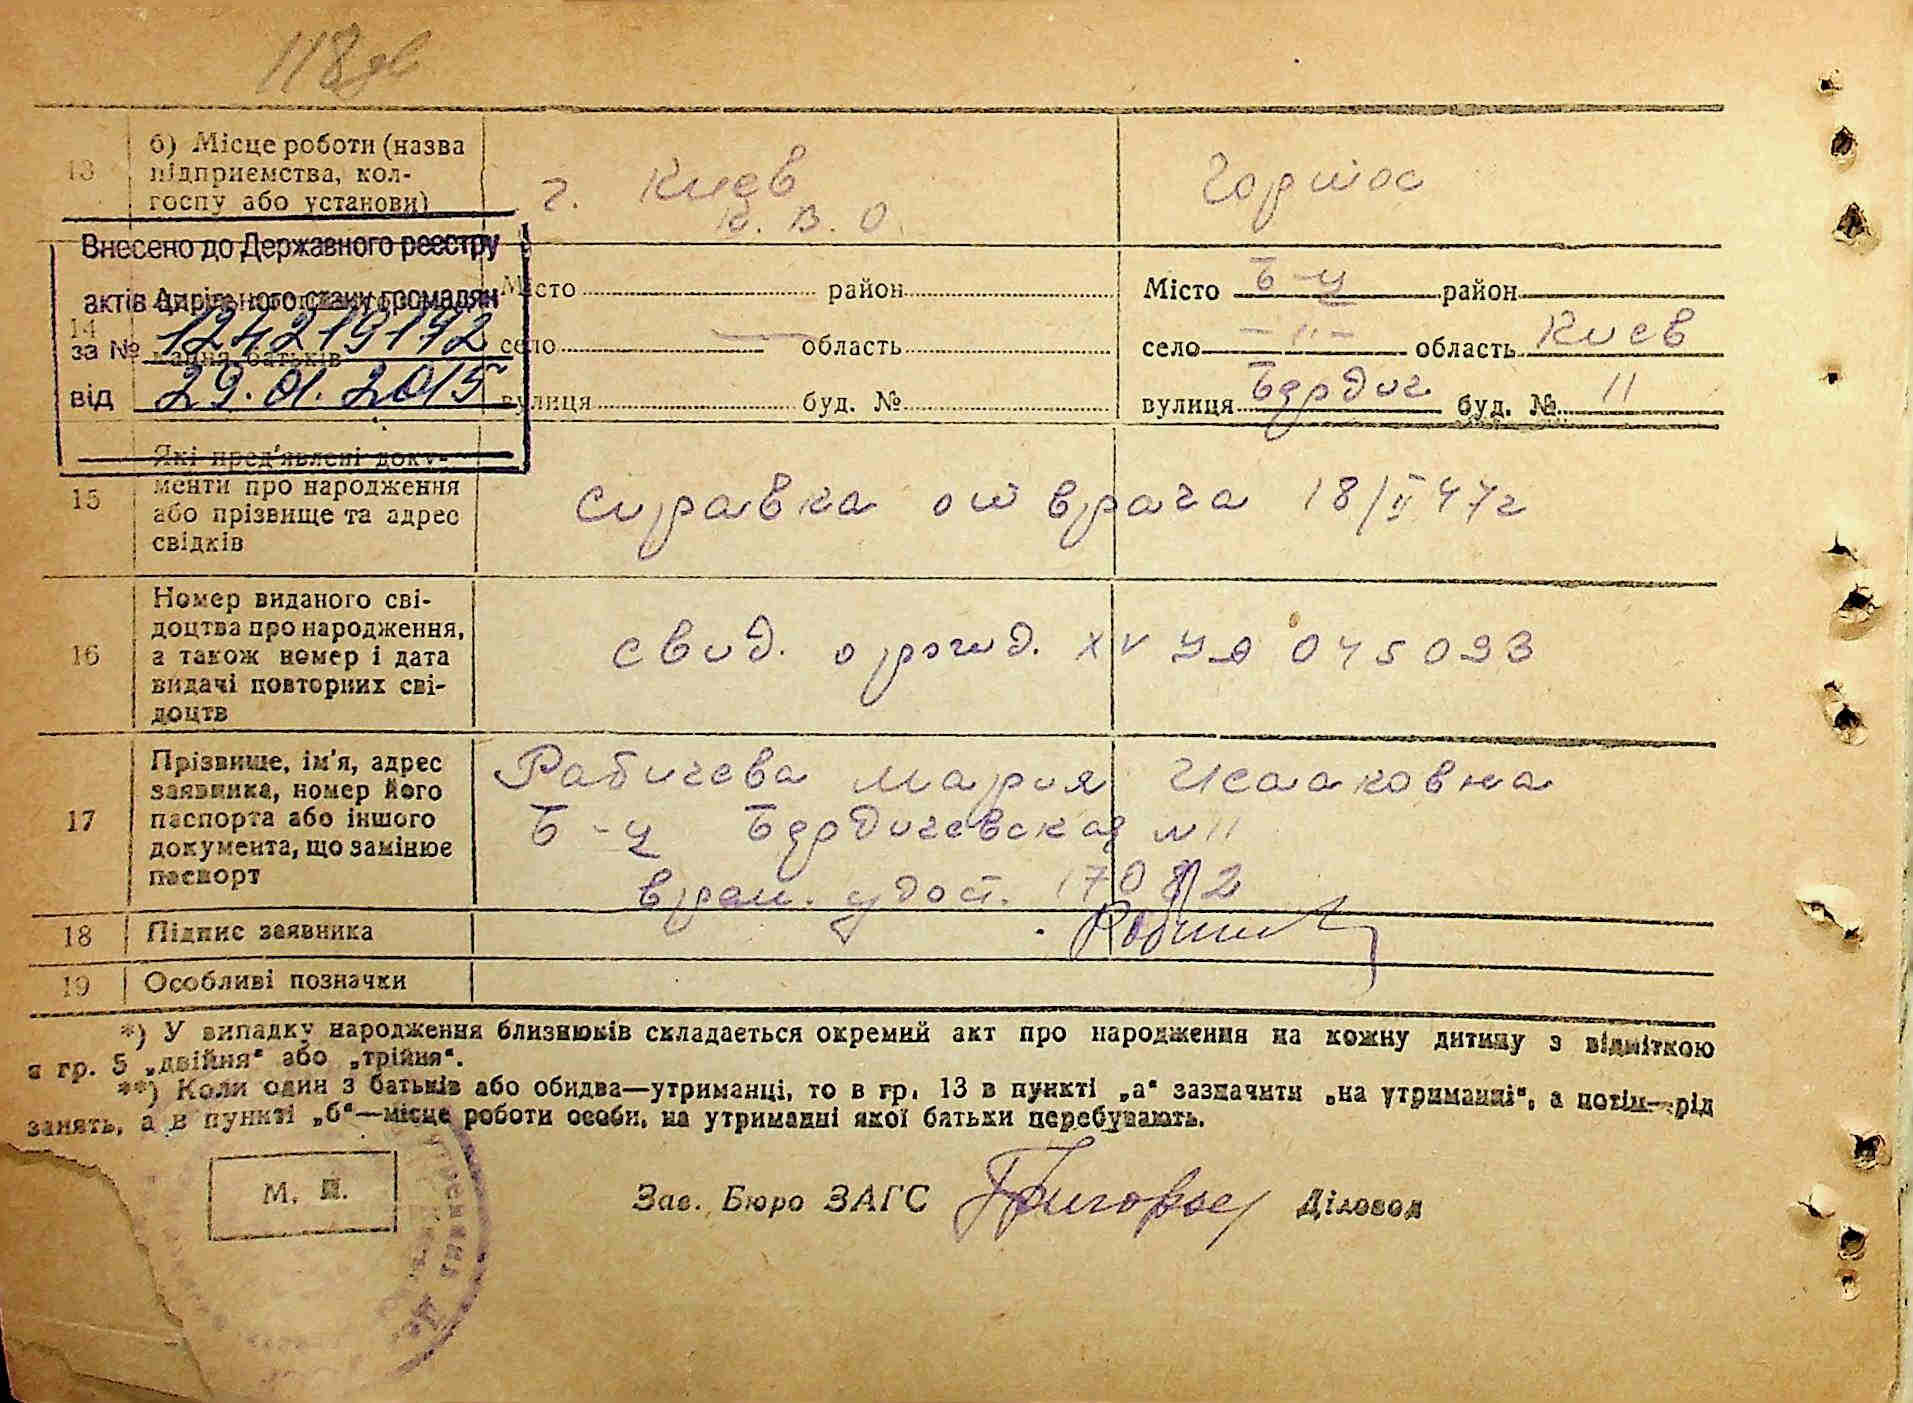 118
13
б) Місце роботи (назва
підприємства, кол-
госпу або установи)
г. Киев
К. В. О.
Горшос
Внесено до Державного реєстру
актів цивільного стану громадян
за № 12421919172
від 29.01.2015
14
мання батьків
Місто район
село область
вулиця буд. №
Місто Б-ц район
село -"- область Киев
вулиця Бердич буд. № 11
15
Які пред'явлені доку-
менти про народження
або прізвище та адрес
свідків
справка от врача 18/II 47г
16
Номер виданого сві-
доцтва про народження,
а також номер і дата
видачі повторних сві-
доцтв
свид. о рожд. XV 045093
17
Прізвище, ім'я, адрес
заявника, номер його
паспорта або іншого
документа, що замінює
паспорт
Рабичева Мария Исааковна
Б-ц Бердичевская № 11
врем. удост. 170
18 Підпис заявника
19 Особливі позначки
*) У випадку народження близнюків складається окремий акт про народження на кожну дитину з відміткою
в гр. 5 „двійня“ або „трійня“.
**) Коли один з батьків або обидва—утриманці, то в гр. 13 в пункті „а“ зазначити „на утриманні“, а потім—рід
занять, а в пункті „б“—місце роботи особи, на утриманні якої батьки перебувають.
М. П.
Зав. Бюро ЗАГС Діловод